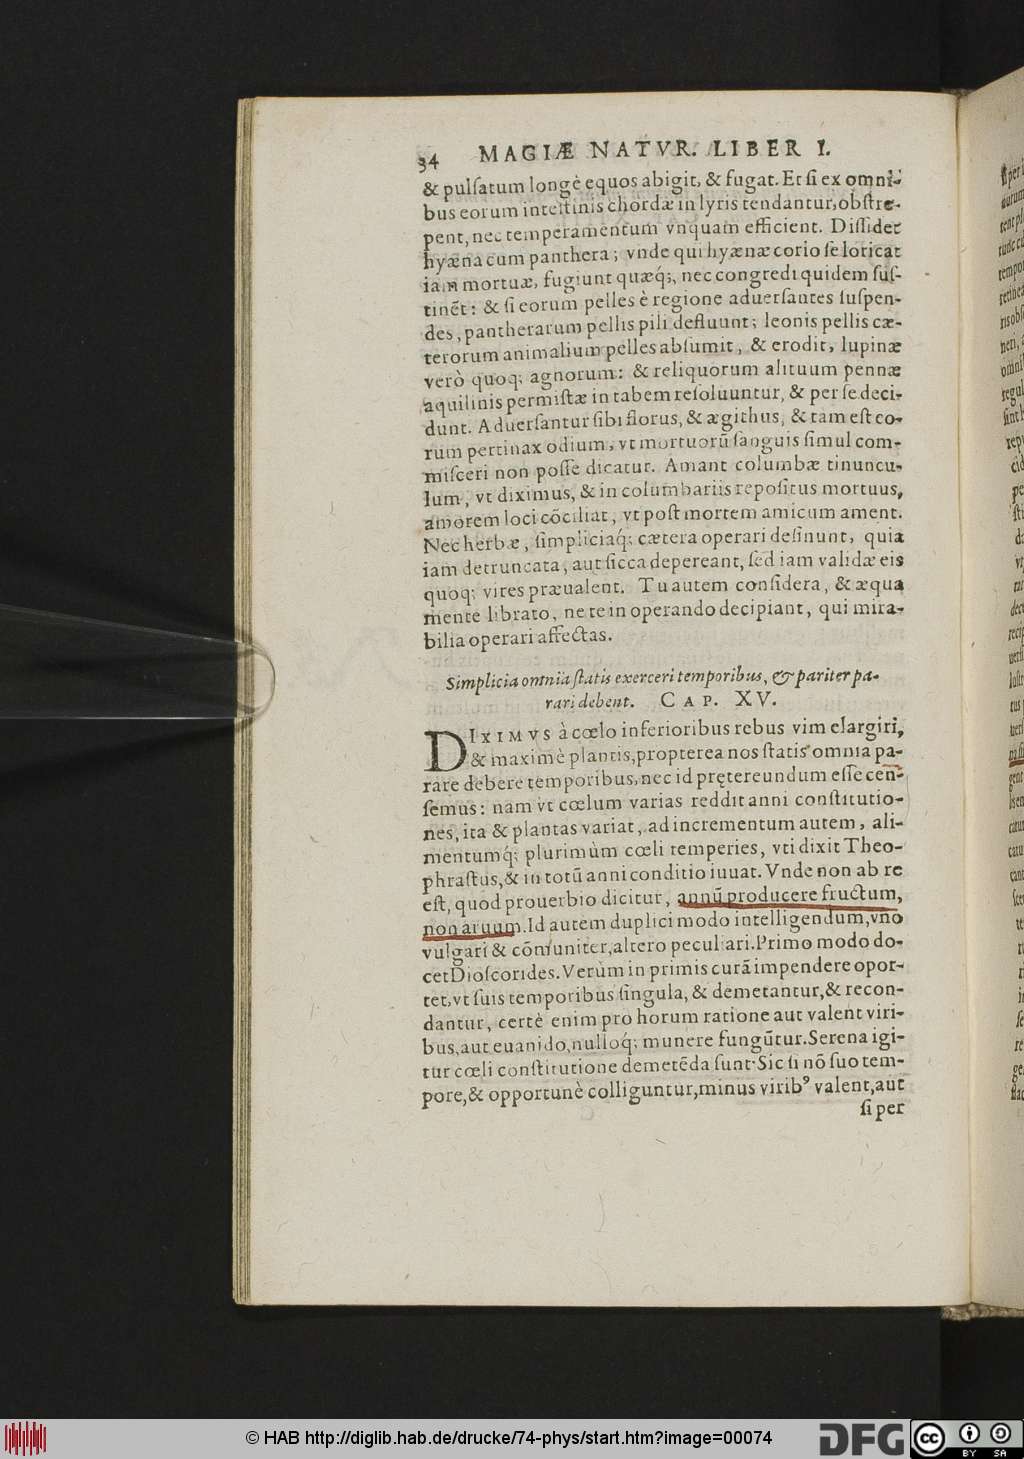 34 MAGIÆ NATVR. LIBER I.
& pulſatum longè equos abigit, & fugat. Et ſi ex omni-
bus eorum inteſtinis chordæ in lyris tendantur, obſtre-
pent, nec temperamentum vnquam efficient. Diſſidet
hyæna cum panthera; vnde qui hyænæ corio ſe loricat
iam mortuæ, fugiunt quæq́;, nec congredi quidem ſuſ-
tinẽt: & ſi eorum pelles è regione aduerſantes ſuſpen-
des, pantherarum pellis pili defluunt; leonis pellis cæ-
terorum animalium pelles abſumit, & erodit, lupinæ
verò quoq; agnorum: & reliquorum alituum pennæ
aquilinis permiſtæ in tabem reſoluuntur, & per ſe deci-
dunt. Aduerſantur ſibi florus, & ægithus, & tam eſt eo-
rum pertinax odium, vt mortuorũ ſanguis ſimul com-
miſceri non poſſe dicatur. Amant columbæ tinuncu-
lum, vt diximus, & in columbariis repoſitus mortuus,
amorem loci cõciliat, vt poſt mortem amicum ament.
Nec herbæ, ſimpliciaq́; cætera operari deſinunt, quia
iam detruncata, aut ſicca depereant, ſed iam validæ eis
quoq; vires præualent. Tu autem conſidera, & æqua
mente librato, ne te in operando decipiant, qui mira-
bilia operari affectas.
Simplicia omnia ſtatis exerceri temporibus, & pariter pa-
rari debent. CAP. XV.
DIXIMVS à cœlo inferioribus rebus vim elargiri,
& maximè plantis, propterea nos ſtatis omnia pa-
rare debere temporibus, nec id prętereundum eſſe cen-
ſemus: nam vt cœlum varias reddit anni conſtitutio-
nes, ita & plantas variat, ad incrementum autem, ali-
mentumq́; plurimùm cœli temperies, vti dixit Theo-
phraſtus, & in totũ anni conditio iuuat. Vnde non ab re
eſt, quod prouerbio dicitur, annũ producere fructum,
non aruum. Id autem duplici modo intelligendum, vno
vulgari & cõmuniter, altero peculiari. Primo modo do-
cet Dioſcorides. Verùm in primis curã impendere opor-
tet, vt ſuis temporibus ſingula, & demetantur, & recon-
dantur, certè enim pro horum ratione aut valent viri-
bus, aut euanido, nulloq́; munere fungũtur. Serena igi-
tur cœli conſtitutione demetẽda ſunt. Sic ſi nõ ſuo tem-
pore, & opportunè colliguntur, minus viribꝰ valent, aut
ſi per
© HAB http://diglib.hab.de/drucke/74-phys/start.htm?image=00074
DFG
cc BY SA